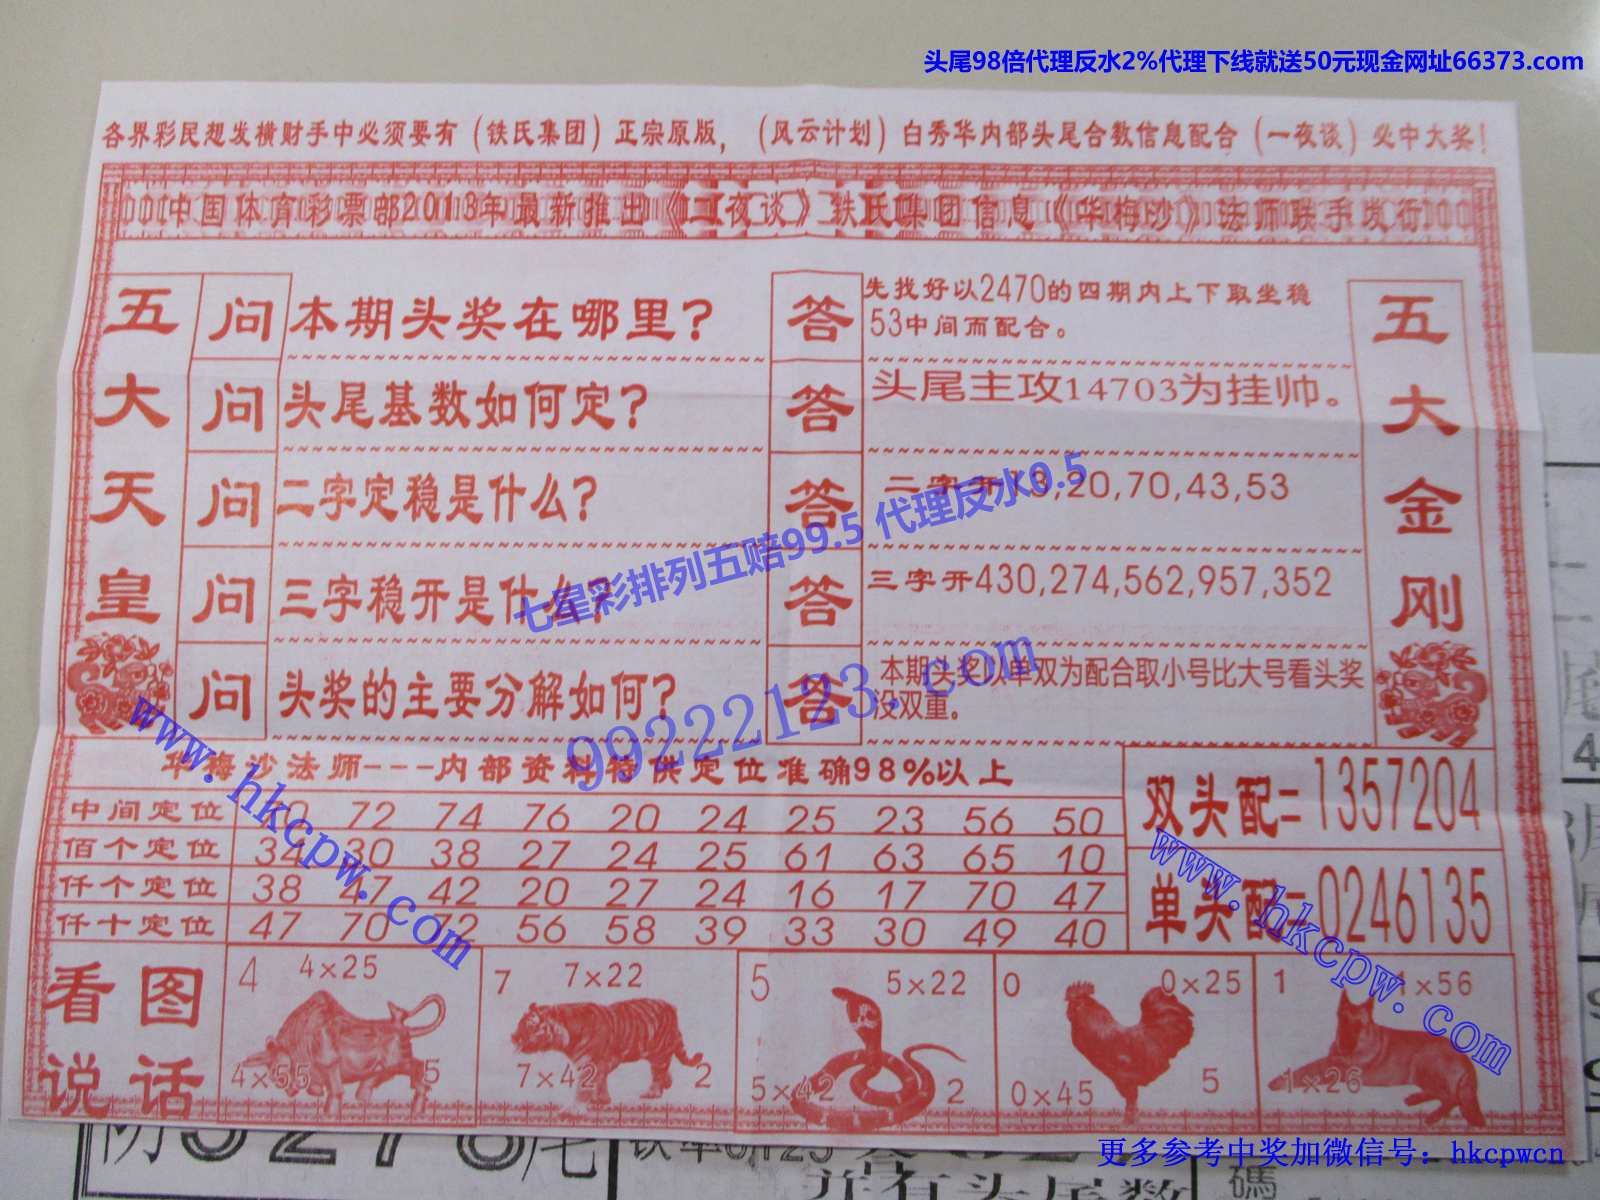 头尾98倍代理反水2%代理下线就送50元现金网址66373.com
各界彩民想发横财手中必须要有（铁氏集团）正宗原版，（风云计划）白秀华内部头尾合数信息配合（一夜谈）必中大奖！
中国体育彩票部2013年最新推出《一夜谈》铁氏集团信息《华梅沙》法师联手发行
五大天皇
问 本期头奖在哪里？ 答 先找好以2470的四期内上下取坐稳
53中间而配合。
问 头尾基数如何定？ 答 头尾主攻14703为挂帅。
问 二字定稳是什么？ 答 二字开13,20,70,43,53
问 三字稳开是什么？ 答 三字开430,274,562,957,352
问 头奖的主要分解如何？ 答 本期头奖以单双为配合取小号比大号看头奖
没双重。
五大金刚
七星彩排列五赔99.5 代理反水0.5
99222123.com
www.hkcpw.com
华梅沙法师---内部资料特供定位准确98%以上
中间定位 72 74 76 20 24 25 23 56 50
佰个定位 34 30 38 27 24 25 61 63 65 10
仟个定位 38 47 42 20 27 24 16 17 70 47
仟十定位 47 70 72 56 58 39 33 30 49 40
双头配=1357204
单头配=0246135
www.hkcpw.com
看图
说话
4 4×25
4×55 5
7 7×22
7×42 2
5 5×22
5×42 2
0 0×25
0×45 5
1 1×56
1×26
更多参考中奖加微信号：hkcpwcn